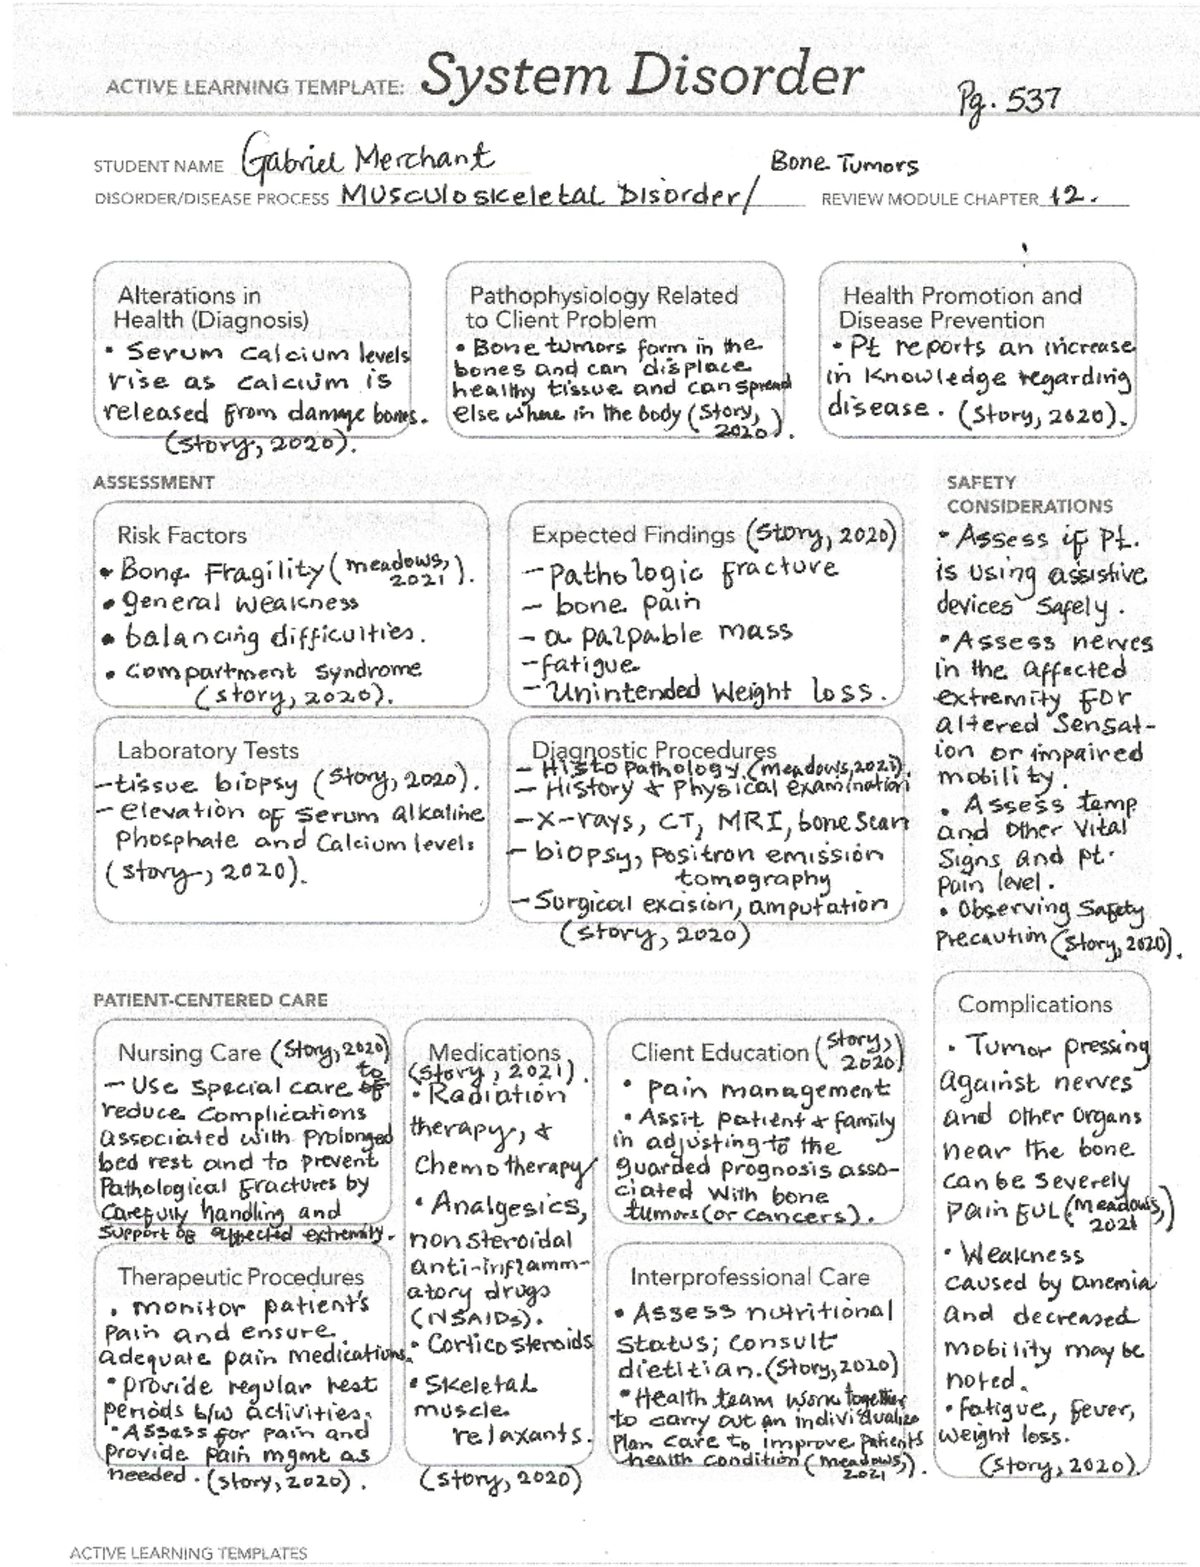 ACTIVE LEARNING TEMPLATE: System Disorder
Pg. 537
STUDENT NAME Gabriel Merchant
Bone Tumors
DISORDER/DISEASE PROCESS Musculoskeletal Disorder/ REVIEW MODULE CHAPTER 12.
Alterations in
Health (Diagnosis)
• Serum calcium levels
rise as calcium is
released from damage bones.
(Story, 2020).
Pathophysiology Related
to Client Problem
• Bone tumors form in the
bones and can displace
healthy tissue and can spread
elsewhere in the body (Story,
2020).
Health Promotion and
Disease Prevention
• Pt reports an increase
in knowledge regarding
disease. (Story, 2020).
ASSESSMENT
Risk Factors
• Bone Fragility (meadows,
2021).
• general weakness
• balancing difficulties.
• Compartment Syndrome
(Story, 2020).
Expected Findings (Story, 2020)
– Pathologic fracture
– bone pain
– a palpable mass
– fatigue
– Unintended Weight loss.
Laboratory Tests
– tissue biopsy (Story, 2020).
– elevation of Serum Alkaline
Phosphate and Calcium levels
(Story, 2020).
Diagnostic Procedures
– Histopathology (meadows, 2021).
– History & Physical examination
– X-rays, CT, MRI, bone Scan
– biopsy, positron emission
tomography
– Surgical excision, amputation
(Story, 2020)
SAFETY
CONSIDERATIONS
• Assess if Pt.
is using assistive
devices safely.
• Assess nerves
in the affected
extremity for
altered Sensat-
ion or impaired
mobility.
• Assess temp
and other Vital
Signs and pt.
Pain level.
• Observing Safety
Precaution (Story, 2020).
PATIENT-CENTERED CARE
Nursing Care (Story, 2020)
to
– Use special care of
reduce complications
associated with prolonged
bed rest and to prevent
Pathological Fractures by
Carefully handling and
Support of affected extremity.
Medications
(Story, 2021).
• Radiation
therapy, &
Chemotherapy
• Analgesics,
nonsteroidal
anti-inflamm-
atory drugs
(NSAIDs).
• Corticosteroids
• Skeletal
muscle
relaxants.
(Story, 2020)
Client Education (Story,
2020)
• Pain management
• Assit patient & family
in adjusting to the
guarded prognosis asso-
ciated with bone
tumors (or cancers).
Therapeutic Procedures
• monitor patient's
pain and ensure
adequate pain medications.
• provide regular rest
periods b/w activities.
• Assess for pain and
provide pain mgmt as
needed. (Story, 2020).
Interprofessional Care
• Assess nutritional
Status; Consult
dietitian. (Story, 2020)
• Health team work together
to carry out an individualize
Plan care to improve patients
health condition (meadows,
2021).
Complications
• Tumor pressing
against nerves
and other organs
near the bone
can be severely
painful (Meadows,
2021)
• Weakness
caused by anemia
and decreased
mobility may be
noted.
• Fatigue, fever,
weight loss.
(Story, 2020).
ACTIVE LEARNING TEMPLATES